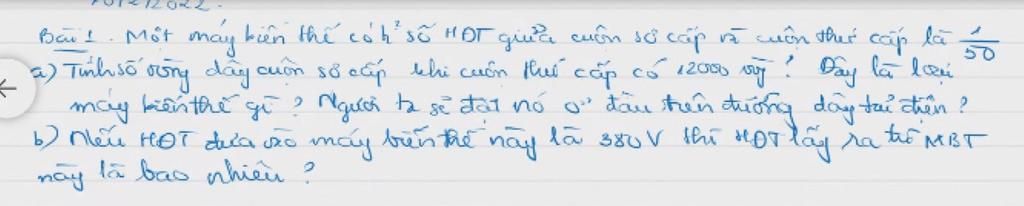 Bài 1. Một máy biến thế có h² số HĐT giữa cuộn sơ cấp và cuộn thứ cấp là 1/50
a) Tính số vòng dây cuộn sơ cấp khi cuộn thứ cấp có 12000 vg? Đây là loại
máy biến thế gì? Người ta sẽ đặt nó ở đầu trên đường dây tải điện?
b) Nếu HĐT đưa vào máy biến thế này là 380V thì HĐT lấy ra từ MBT
này là bao nhiêu?